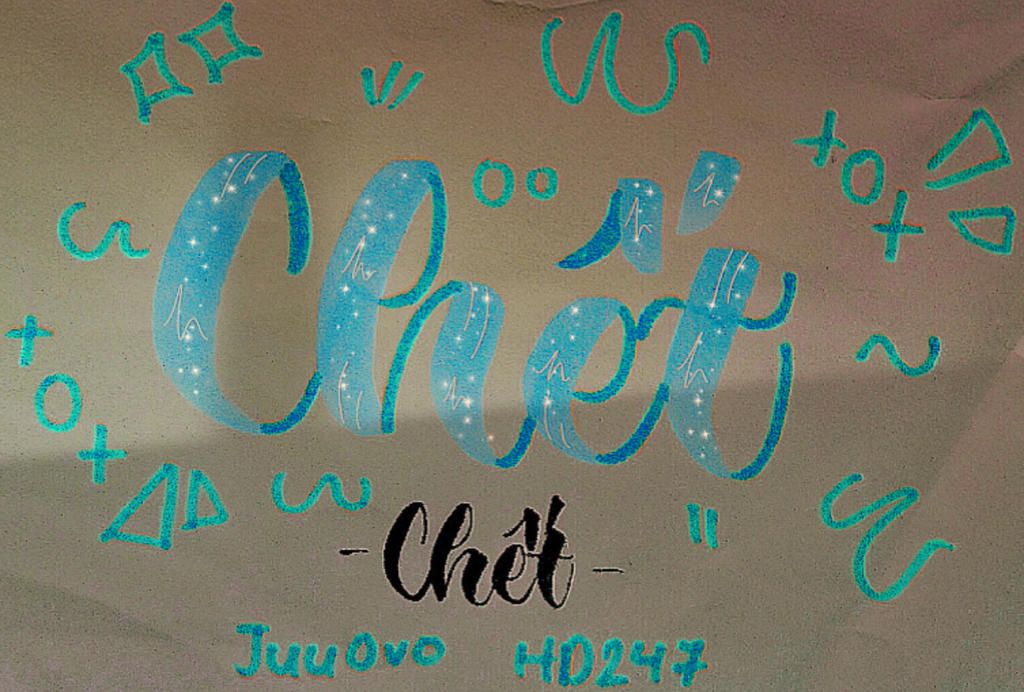 Chết
- Chết -
JuuOvO HD247